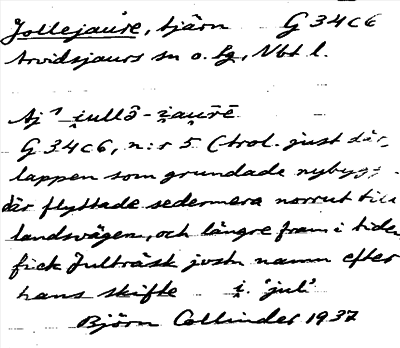 Jollejaure, tjärn G 34 c 6
Arvidsjaurs sn o. lg, Nbt l.
Aj ˀ i̯ullō̂-i̯au̯rē
G 34 c 6, n:r 5 (trol. just där,
lappen som grundade nybygg
där flyttade sedermera norrut till
landsvägen, och längre fram i tiden
fick Julträsk just namn efter
hans skifte i̯. 'jul'
Björn Collinder 1937